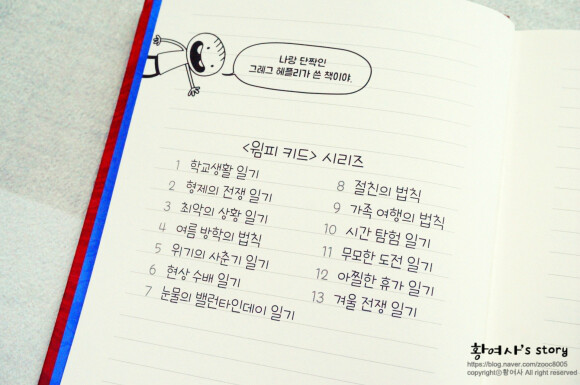 나랑 단짝인
그레그 헤플리가 쓴 책이야.
<윔피 키드> 시리즈
1 학교생활 일기
2 형제의 전쟁 일기
3 최악의 상황 일기
4 여름 방학의 법칙
5 위기의 사춘기 일기
6 현상 수배 일기
7 눈물의 밸런타인데이 일기
8 절친의 법칙
9 가족 여행의 법칙
10 시간 탐험 일기
11 무모한 도전 일기
12 아찔한 휴가 일기
13 겨울 전쟁 일기
황여사's story
https://blog.naver.com/zooc8005
copyrightⓒ황여사 All rights reserved